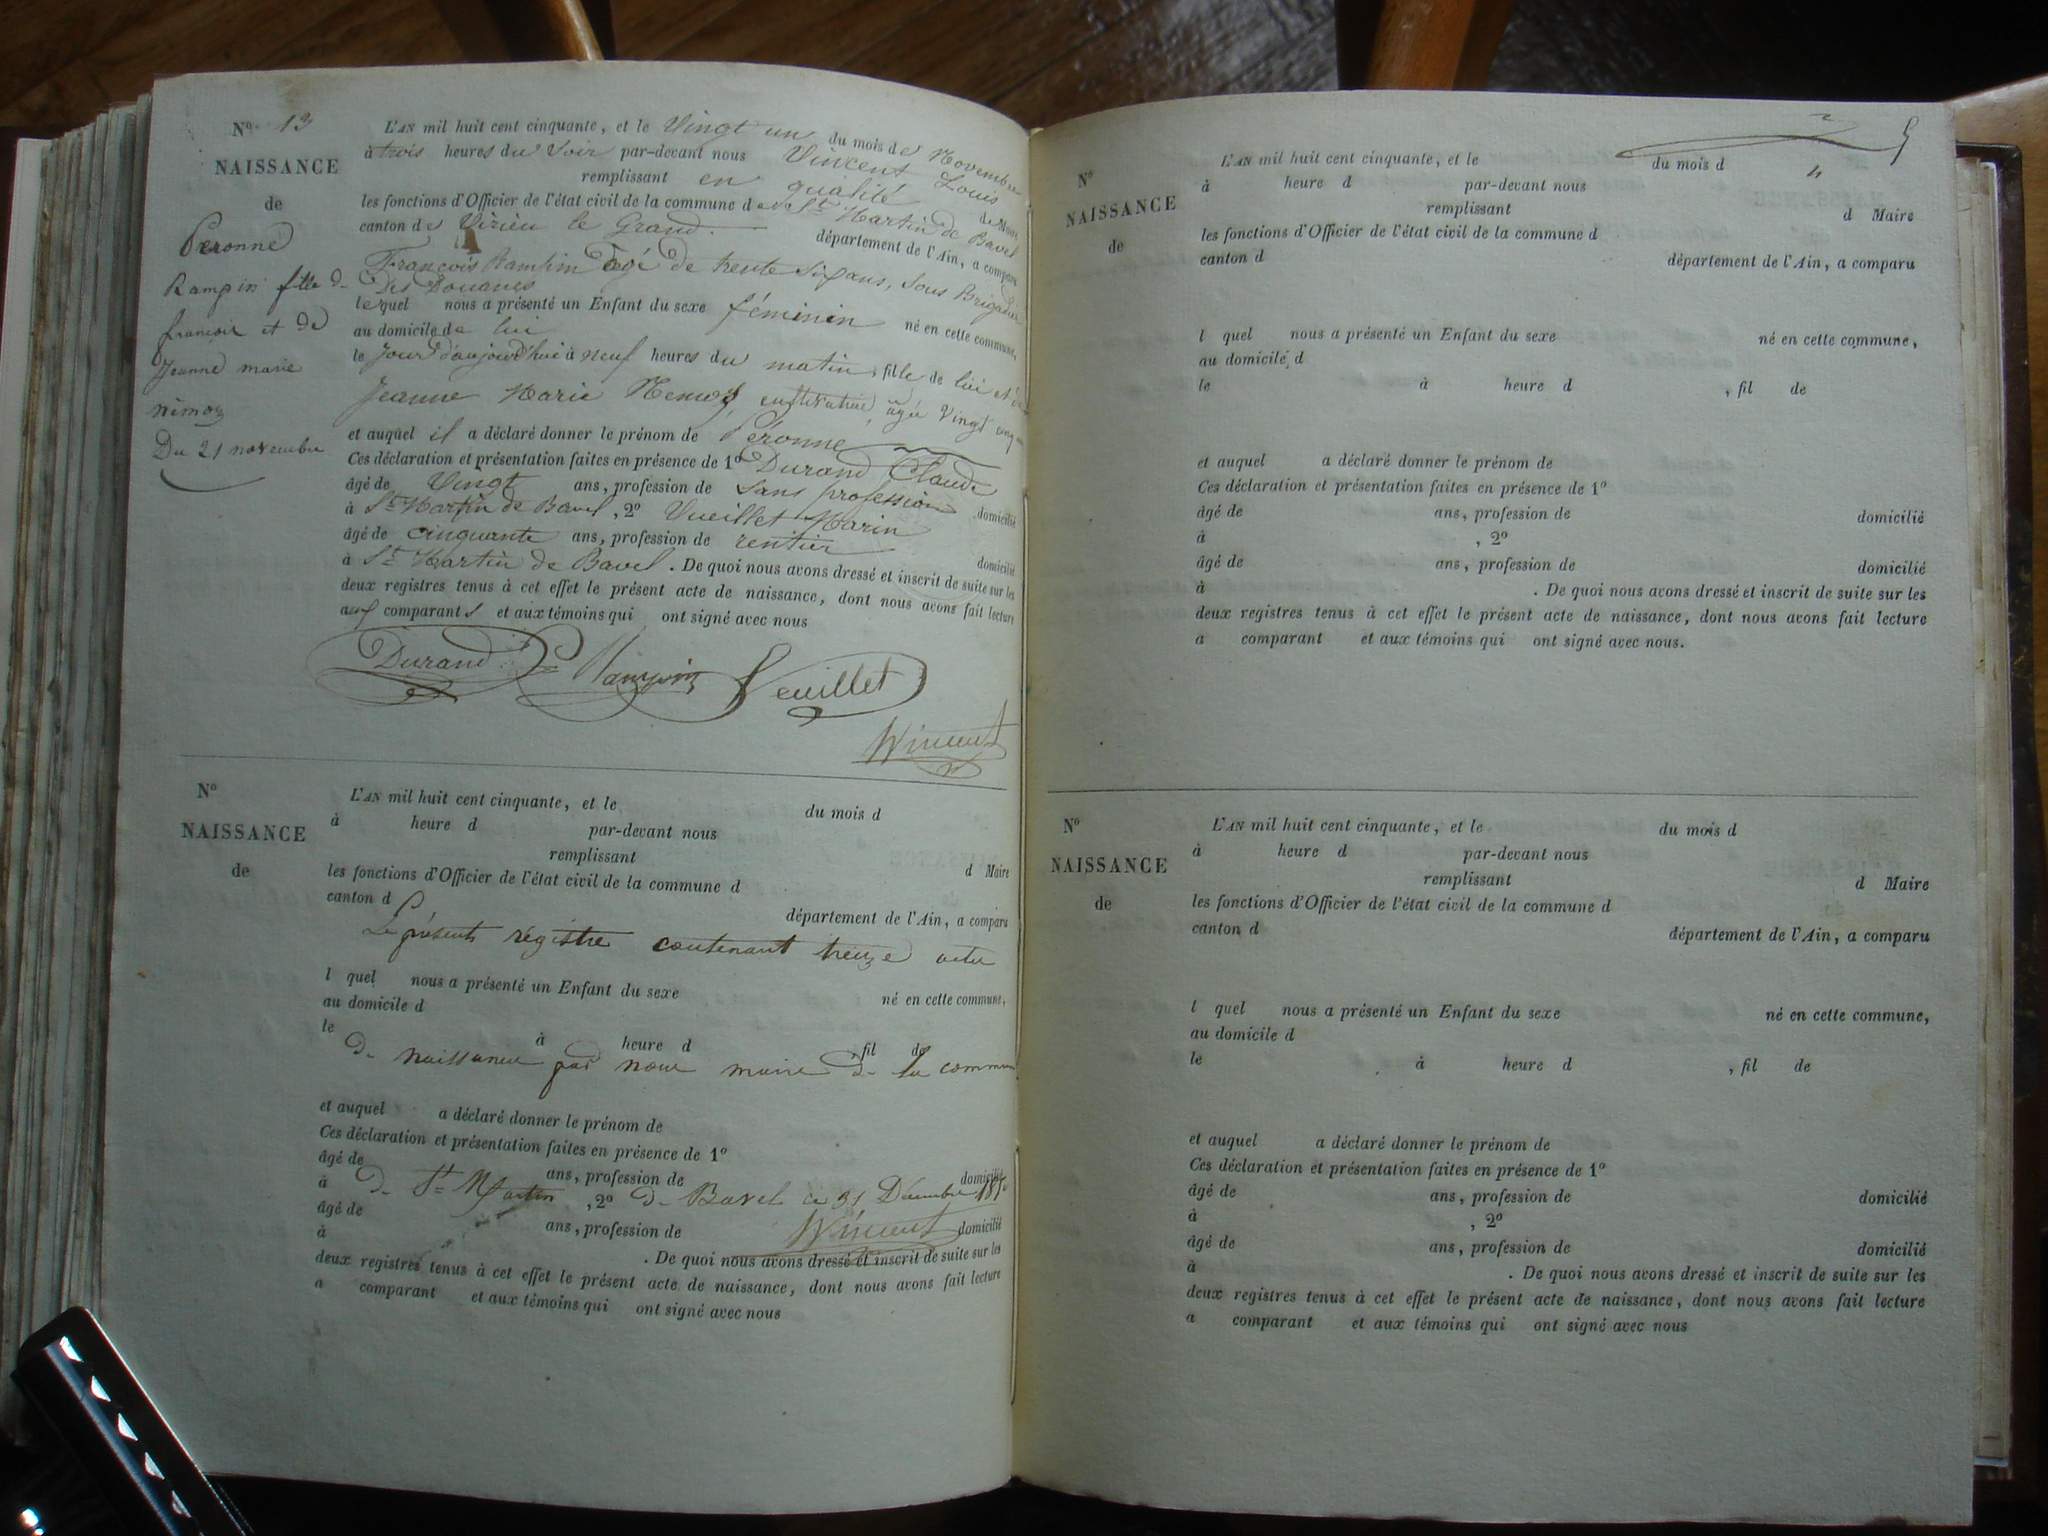 No 13
NAISSANCE
de
Péronne
Rampin fille de
françois et de
Jeanne marie
némoz
Du 21 novembre
L'AN mil huit cent cinquante, et le Vingt un du mois de Novembre
à trois heures du Soir par-devant nous Vincent Louis
remplissant en qualité de Maire
les fonctions d'Officier de l'état civil de la commune de St Martin de Bavel
canton de Virieu le Grand. département de l'Ain, a comparu
François Rampin âgé de trente six ans, Sous Brigadier
des Douanes
lequel nous a présenté un Enfant du sexe féminin né en cette commune,
au domicile de lui
le Jour d'aujourd'hui à neuf heures du matin, fille de lui et de
Jeanne Marie Nemoz, cultivatrice, âgée Vingt cinq
et auquel il a déclaré donner le prénom de Péronne
Ces déclaration et présentation faites en présence de 1o Durand Claude
âgé de Vingt ans, profession de Sans profession domicilié
à St Martin de Bavel, 2o Vueillet Marin
âgé de cinquante ans, profession de rentier domicilié
à St Martin de Bavel. De quoi nous avons dressé et inscrit de suite sur les
deux registres tenus à cet effet le présent acte de naissance, dont nous avons fait lecture
aux comparants et aux témoins qui ont signé avec nous
Durand C Rampin Veuillet
Vincent
No
NAISSANCE
de
L'AN mil huit cent cinquante, et le du mois d
à heure d par-devant nous
remplissant d Maire
les fonctions d'Officier de l'état civil de la commune d
canton d département de l'Ain, a comparu
Le présent régistre contenant treize actes
l quel nous a présenté un Enfant du sexe né en cette commune,
au domicile d
le à heure d fil de
de naissance par nous maire de la commune
et auquel a déclaré donner le prénom de
Ces déclaration et présentation faites en présence de 1o
âgé de ans, profession de domicilié
à de St Martin, 2o de Bavel ce 31 Décembre 1850
âgé de ans, profession de Vincent domicilié
à . De quoi nous avons dressé et inscrit de suite sur les
deux registres tenus à cet effet le présent acte de naissance, dont nous avons fait lecture
a comparant et aux témoins qui ont signé avec nous
No
NAISSANCE
de
L'AN mil huit cent cinquante, et le du mois d
à heure d par-devant nous
remplissant d Maire
les fonctions d'Officier de l'état civil de la commune d
canton d département de l'Ain, a comparu
l quel nous a présenté un Enfant du sexe né en cette commune,
au domicile d
le à heure d , fil de
et auquel a déclaré donner le prénom de
Ces déclaration et présentation faites en présence de 1o
âgé de ans, profession de domicilié
à , 2o
âgé de ans, profession de domicilié
à . De quoi nous avons dressé et inscrit de suite sur les
deux registres tenus à cet effet le présent acte de naissance, dont nous avons fait lecture
a comparant et aux témoins qui ont signé avec nous.
No
NAISSANCE
de
L'AN mil huit cent cinquante, et le du mois d
à heure d par-devant nous
remplissant d Maire
les fonctions d'Officier de l'état civil de la commune d
canton d département de l'Ain, a comparu
l quel nous a présenté un Enfant du sexe né en cette commune,
au domicile d
le à heure d , fil de
et auquel a déclaré donner le prénom de
Ces déclaration et présentation faites en présence de 1o
âgé de ans, profession de domicilié
à , 2o
âgé de ans, profession de domicilié
à . De quoi nous avons dressé et inscrit de suite sur les
deux registres tenus à cet effet le présent acte de naissance, dont nous avons fait lecture
a comparant et aux témoins qui ont signé avec nous